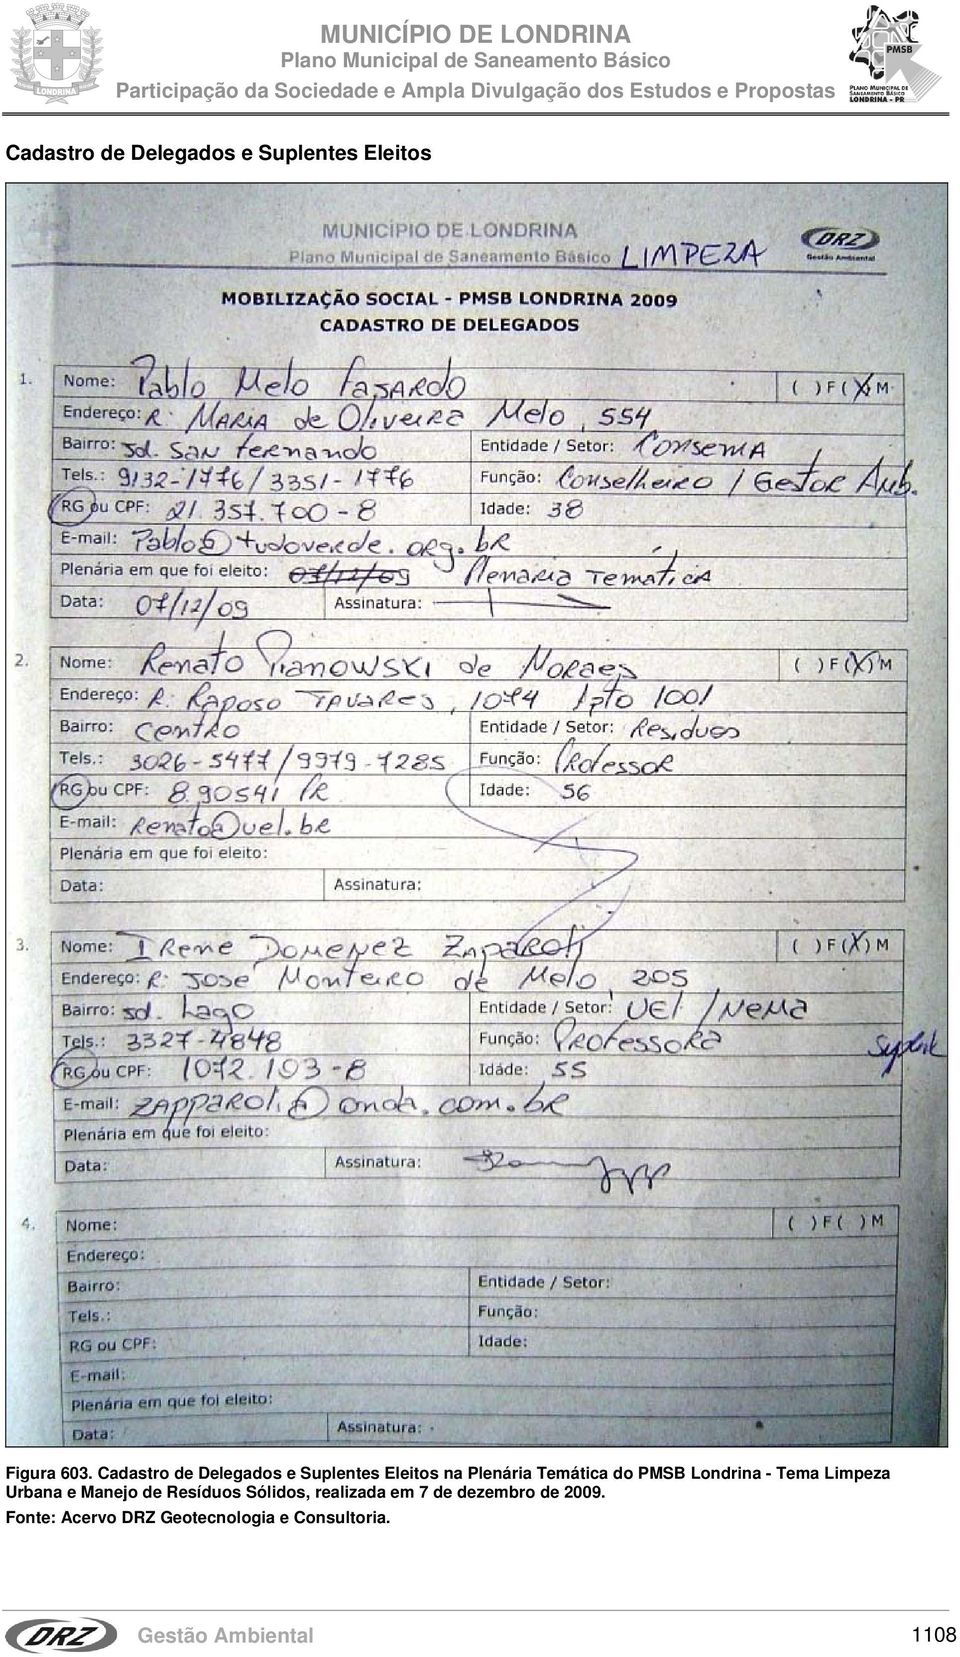 MUNICÍPIO DE LONDRINA
Plano Municipal de Saneamento Básico
Participação da Sociedade e Ampla Divulgação dos Estudos e Propostas
LONDRINA
PMSB
PLANO MUNICIPAL DE
SANEAMENTO BÁSICO
LONDRINA - PR
Cadastro de Delegados e Suplentes Eleitos
MUNICÍPIO DE LONDRINA
Plano Municipal de Saneamento Básico LIMPEZA
DRZ
Gestão Ambiental
MOBILIZAÇÃO SOCIAL - PMSB LONDRINA 2009
CADASTRO DE DELEGADOS
1. Nome: Pablo Melo Fajardo ( ) F (X) M
Endereço: R. Maria de Oliveira Melo, 554
Bairro: Jd. San Fernando Entidade / Setor: Consema
Tels.: 9132-1776 / 3351-1776 Função: Conselheiro / Gestor Amb.
RG ou CPF: 21.357.700-8 Idade: 38
E-mail: Pablo@tudoverde.org.br
Plenária em que foi eleito: 07/12/09 Plenaria Temática
Data: 07/12/09 Assinatura:
2. Nome: Renato Pianowski de Moraes ( ) F (X) M
Endereço: R. Raposo Tavares, 1074 Apto 1001
Bairro: Centro Entidade / Setor: Residuos
Tels.: 3026-5477 / 9979-7285 Função: Professor
RG ou CPF: 8.90541 PR Idade: 56
E-mail: Renato@uel.br
Plenária em que foi eleito:
Data: Assinatura:
3. Nome: Irene Domenez Zaparoli ( ) F (X) M
Endereço: R. José Monteiro de Melo, 205
Bairro: Jd. Lago Entidade / Setor: UEL / Nema
Tels.: 3327-4848 Função: Professora
Suplente
RG ou CPF: 1072.103-8 Idade: 55
E-mail: zapparoli@onda.com.br
Plenária em que foi eleito:
Data: Assinatura:
4. Nome: ( ) F ( ) M
Endereço:
Bairro: Entidade / Setor:
Tels.: Função:
RG ou CPF: Idade:
E-mail:
Plenária em que foi eleito:
Data: Assinatura:
Figura 603. Cadastro de Delegados e Suplentes Eleitos na Plenária Temática do PMSB Londrina - Tema Limpeza
Urbana e Manejo de Resíduos Sólidos, realizada em 7 de dezembro de 2009.
Fonte: Acervo DRZ Geotecnologia e Consultoria.
DRZ Gestão Ambiental 1108